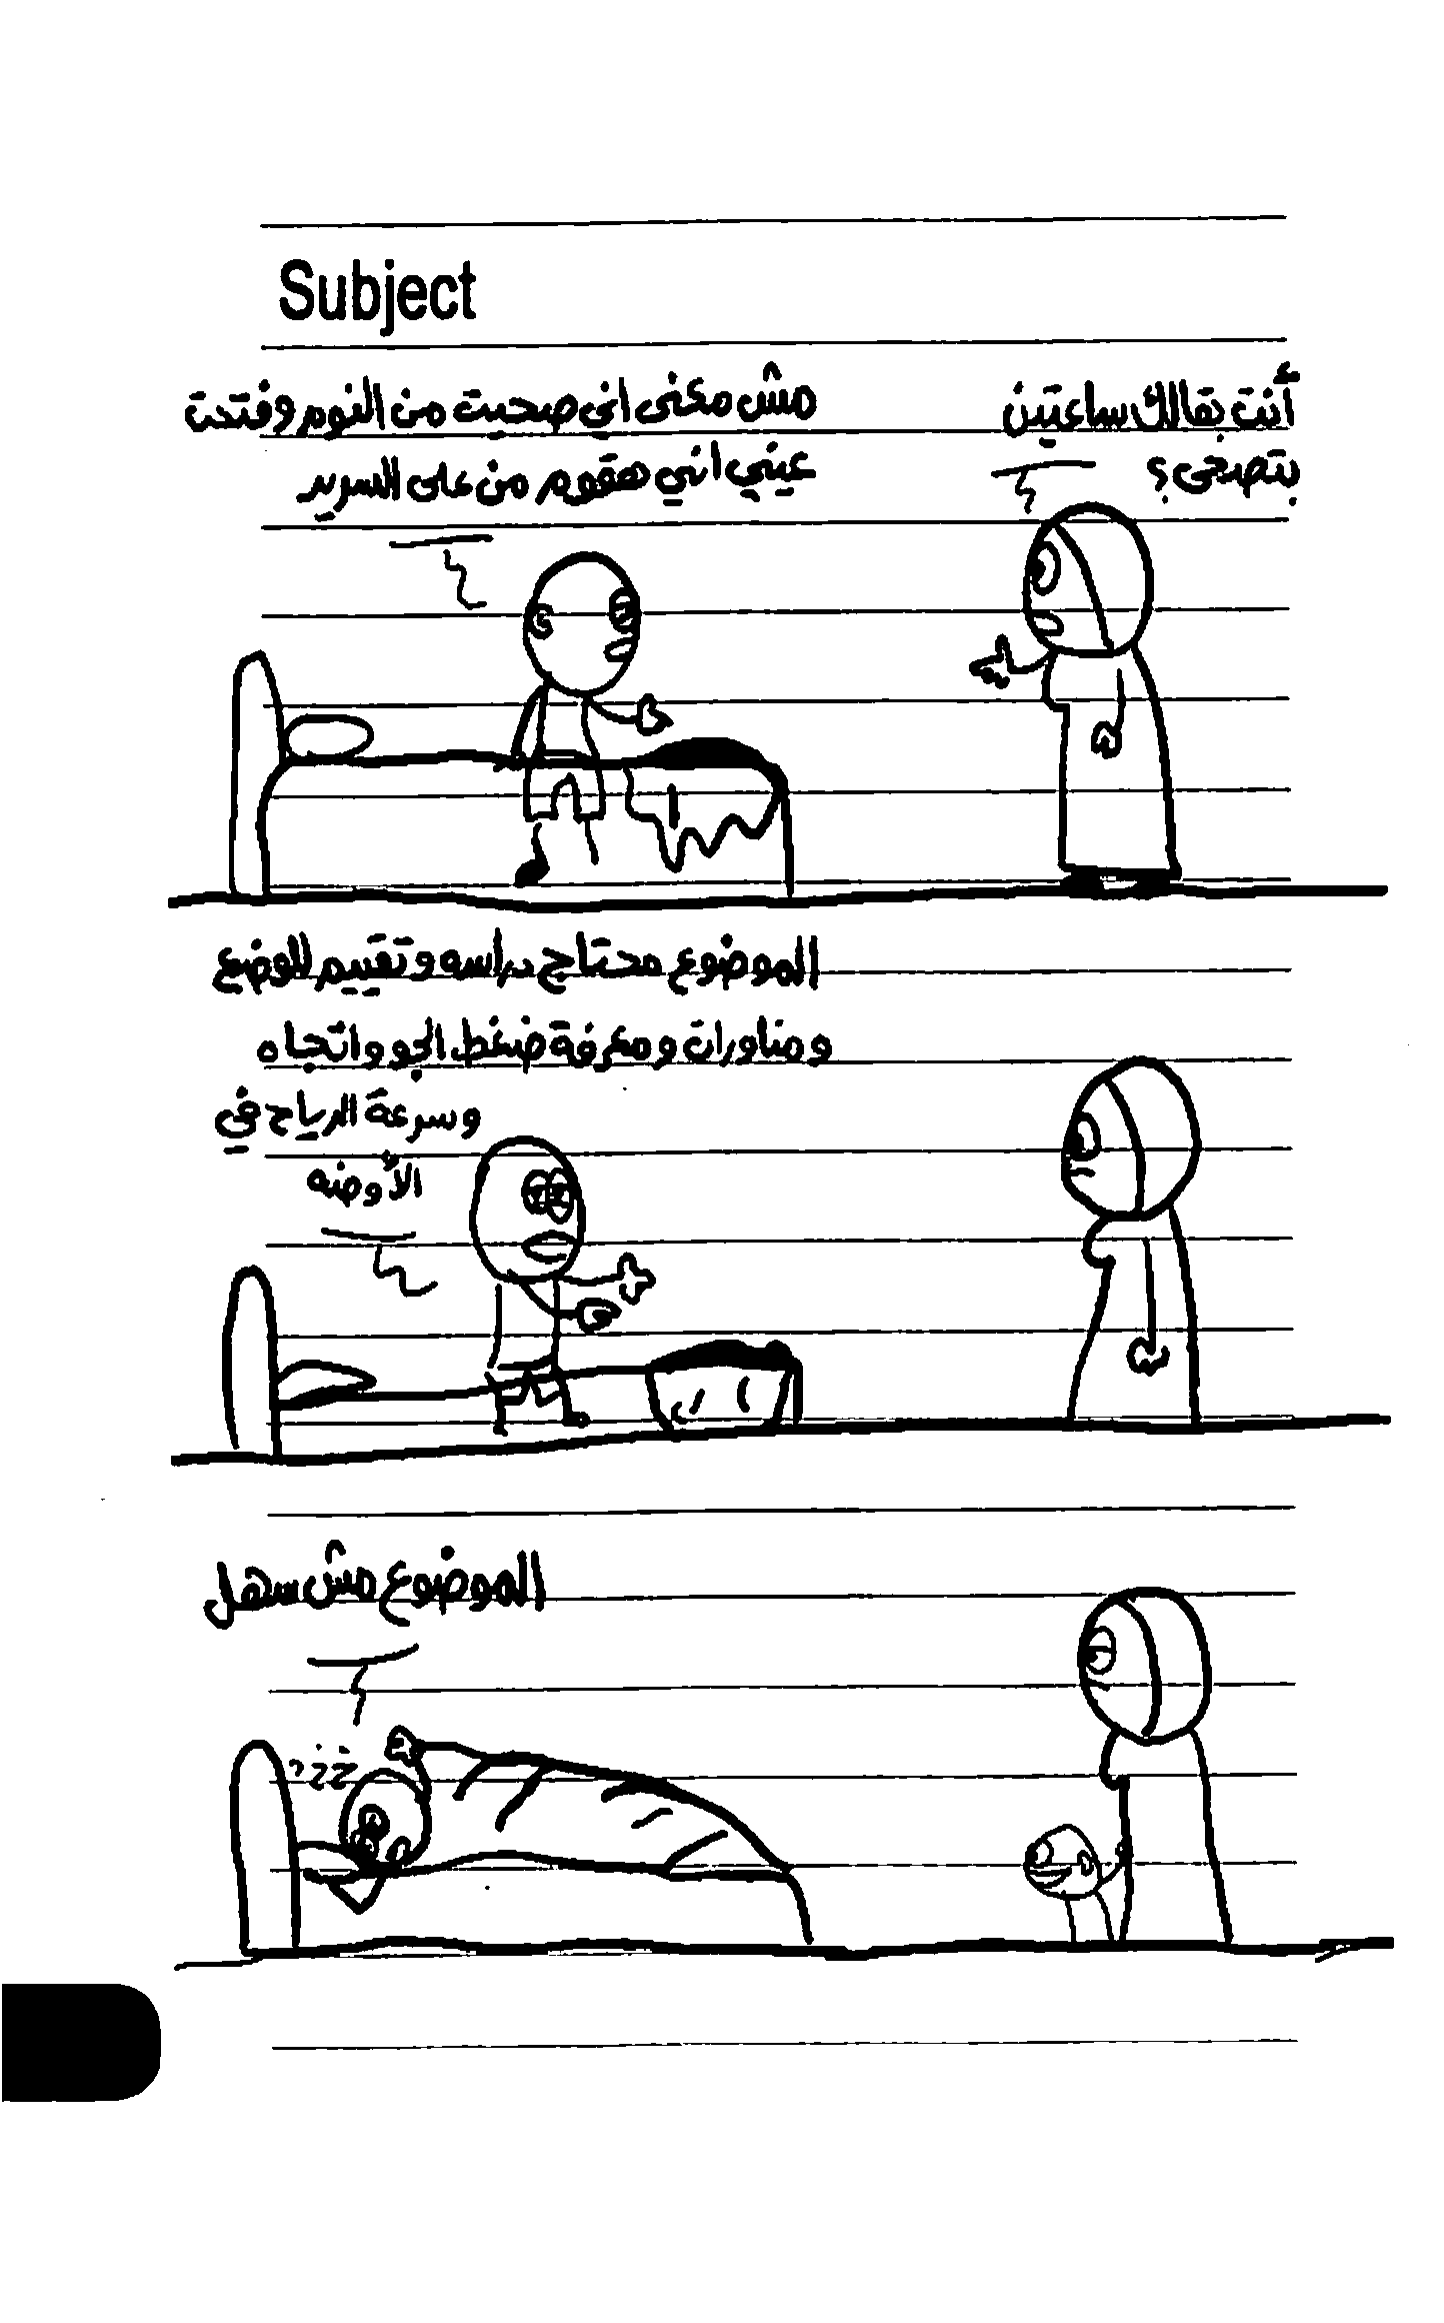 Subject
أنت بقالك ساعتين
بتصحى؟
مش معنى اني صحيت من النوم وفتحت
عيني اني هقوم من على السرير
الموضوع محتاج دراسه وتقييم للوضع
ومناورات ومعرفة ضغط الجو واتجاه
وسرعة الرياح في
الأوضه
الموضوع مش سهل
ززز